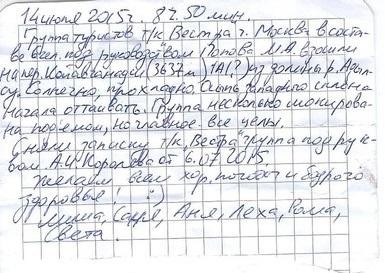 14 июля 2015г. 8ч. 50 мин.
Группа туристов т/к Вестра г. Москва в соста-
ве 6 чел. под руководством Попова М.А. взошли
на пер. Койавганауш (3637 м) 1А(?) из долины р. Адыл-
су. Солнечно, прохладно. Осыпь западного склона
начала оттаивать. Группа несколько шокирова-
на подъемом, но главное все целы.
Сняли записку т/к "Вестра" группа под рук-
вом А.И. Королёва от 6.07.2015
Желаем всем хор. погоды и бодрого
здоровья! :)
Миша, Саря, Аня, Лёха, Рома,
Света.